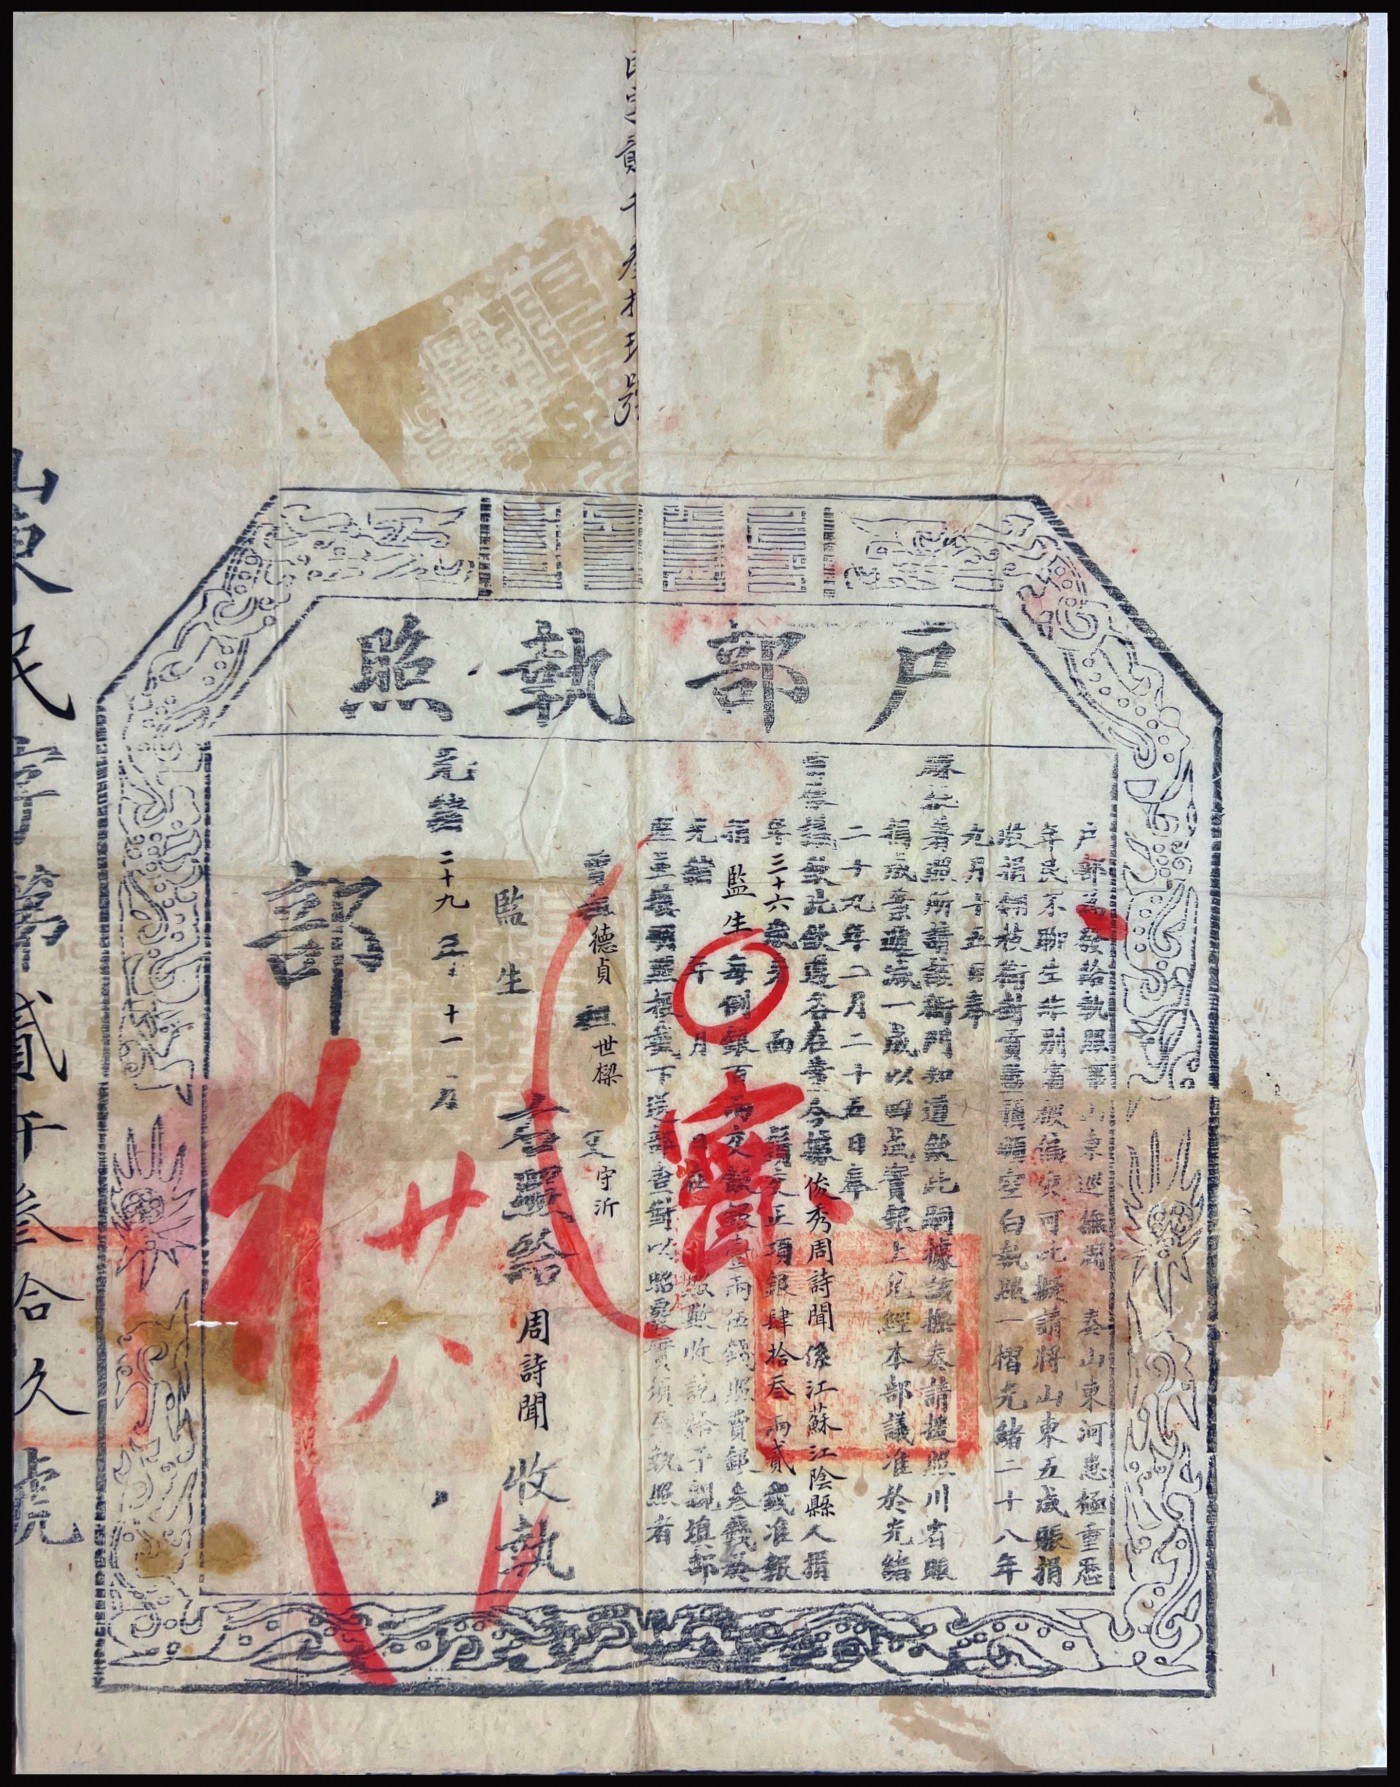 戶部執照
戶部為發給執照事山東巡撫周 奏山東河患極重歷
年民不聊生非別省被偏災可比擬請將山東五成賑捐
照捐翎枝銜封貢監頒空白執照一摺光緒二十八年
九月十五日奉
硃批著照所請該衙門知道欽此嗣據該撫奏請援照川省賑
捐成案遞減一成以四成實銀上兌經本部議准於光緒
二十九年二月二十五日奉
旨依議欽此欽遵各在案今據俊秀周詩聞係江蘇江陰縣人捐
年三十六歲 面 鬚交正項銀肆拾叁兩貳錢准報
捐監生每例銀百兩交 銀壹兩伍錢照費銀叁錢
光緒 年 月 日在 照數收訖給予 填部
監生 明照根 下送部查對以昭 實須至執照者
曾祖德貞 祖世樑 父守沂
監生
右照給周詩聞收執
光緒二十九年十一月廿六
部
山東民字第貳千叁拾久號